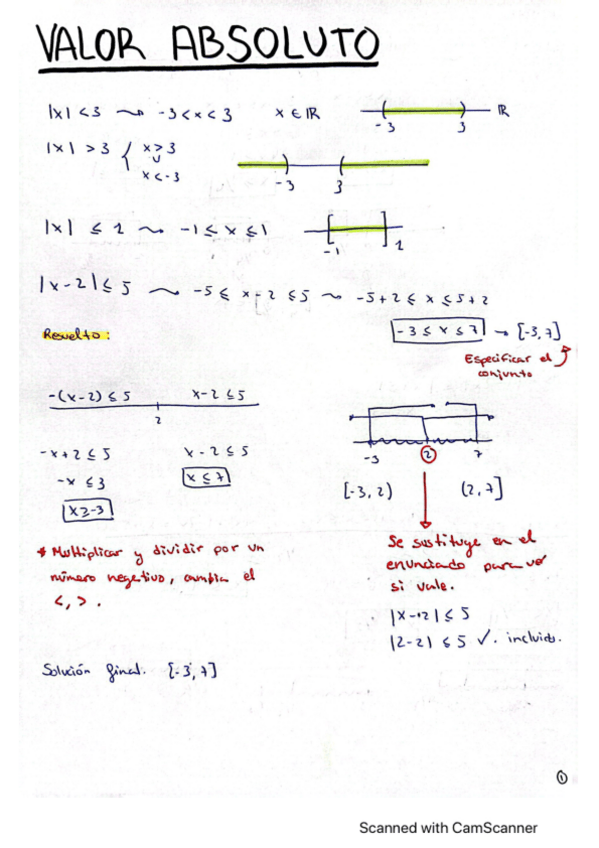 VALOR ABSOLUTO
|x| < 3 ⤳ -3 < x < 3 x ∈ ℝ
-3 3 ℝ
|x| > 3 { x > 3
∪
x < -3
-3 3
|x| ≤ 1 ⤳ -1 ≤ x ≤ 1
-1 1
|x - 2| ≤ 5 ⤳ -5 ≤ x - 2 ≤ 5 ⤳ -5+2 ≤ x ≤ 5+2
Resuelto:
-3 ≤ x ≤ 7 → [-3, 7]
Especificar el
conjunto
-(x-2) ≤ 5 x-2 ≤ 5
2
-x+2 ≤ 5 x-2 ≤ 5
-x ≤ 3 x ≤ 7
x ≥ -3
-3 2 7
[-3, 2) (2, 7]
* Multiplicar y dividir por un
número negativo, cambia el
<, > .
Se sustituye en el
enunciado para ver
si vale.
|x-2| ≤ 5
|2-2| ≤ 5 ✓. incluido.
Solución final. [-3, 7]
1
Scanned with CamScanner